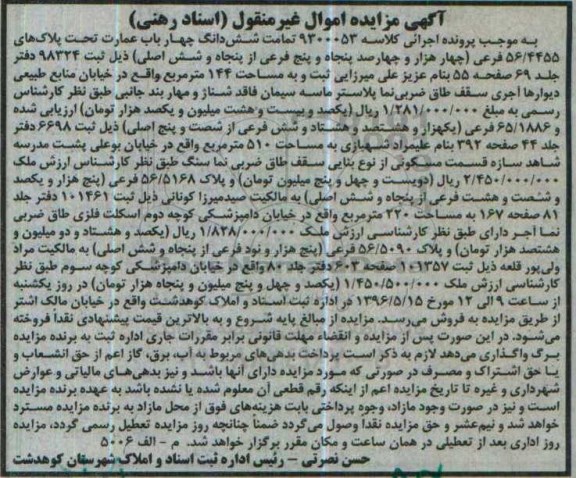 آگهی مزایده اموال غیرمنقول (اسناد رهنی)
به موجب پرونده اجرائی کلاسه ۹۳۰۰۰۵۳ تمامت شش‌دانگ چهار باب عمارت تحت پلاک‌های
۵۶/۴۴۵۵ فرعی (چهار هزار و چهارصد پنجاه و پنج فرعی از پنجاه و شش اصلی) ذیل ثبت ۹۸۳۲۴ دفتر
جلد ۶۹ صفحه ۵۵ بنام عزیز علی میرزایی ثبت و به مساحت ۱۴۴ مترمربع واقع در خیابان منابع طبیعی
دیوارها آجری سقف طاق ضربی‌نما پلاستر ماسه سیمان فاقد شناژ و مهار بند جانبی طبق نظر کارشناس
رسمی به مبلغ ۱/۲۸۱/۰۰۰/۰۰۰ ریال (یکصد وبیست و هشت میلیون و یکصد هزار تومان) ارزیابی شده
و ۶۵/۱۸۸۶ فرعی (یکهزار و هشتصد و هشتاد و شش فرعی از شصت و پنج اصلی) ذیل ثبت ۶۶۹۸ دفتر
جلد ۴۴ صفحه ۳۹۲ بنام علیمراد شهبازی به مساحت ۵۱۰ مترمربع واقع در خیابان بوعلی پشت مدرسه
شاهد سازه قسمت مسکونی از نوع بنایی سقف طاق ضربی نما سنگ طبق نظر کارشناس ارزش ملک
۲/۴۵۰/۰۰۰/۰۰۰ ریال (دویست و چهل و پنج میلیون تومان) و پلاک ۵۶/۵۱۶۸ فرعی (پنج هزار و یکصد
و شصت و هشت فرعی از پنجاه و شش اصلی) به مالکیت صیدمیرزا کونانی ذیل ثبت ۱۰۱۴۶۱ دفتر جلد
۸۱ صفحه ۱۶۷ به مساحت ۲۲۰ مترمربع واقع در خیابان دامپزشکی کوچه دوم اسکلت فلزی طاق ضربی
نما آجر دارای طبق نظر کارشناسی ارزش ملک ۱/۸۲۸/۰۰۰/۰۰۰ ریال (یکصد و هشتاد و دو میلیون و
هشتصد هزار تومان) و پلاک ۵۶/۵۰۹۰ فرعی (پنج هزار و نود فرعی از پنجاه و شش اصلی) به مالکیت مراد
ولی‌پور قلعه ذیل ثبت ۱۰۱۳۵۷ صفحه ۶۰۳ دفتر جلد ۸۰ واقع در خیابان دامپزشکی کوچه سوم طبق نظر
کارشناسی ارزش ملک ۱/۴۵۰/۵۰۰/۰۰۰ ریال (یکصد و چهل و پنج میلیون و پنجاه هزار تومان) در روز یکشنبه
از ساعت ۹ الی ۱۲ مورخ ۱۳۹۶/۵/۱۵ در اداره ثبت اسناد و املاک کوهدشت واقع در خیابان مالک اشتر
از طریق مزایده به فروش می‌رسد. مزایده از مبالغ پایه شروع و به بالاترین قیمت پیشنهادی نقداً فروخته
می‌شود. در این صورت پس از مزایده و انقضاء مهلت قانونی برابر مقررات جاری اداره ثبت به برنده مزایده
برگ واگذاری می‌دهد لازم به ذکر است پرداخت بدهی‌های مربوط به آب، برق، گاز اعم از حق انشعاب و
یا حق اشتراک و مصرف در صورتی که مورد مزایده دارای آنها باشد و نیز بدهی‌های مالیاتی و عوارض
شهرداری و غیره تا تاریخ مزایده اعم از اینکه رقم قطعی آن معلوم شده یا نشده باشد به عهده برنده مزایده
است و نیز در صورت وجود مازاد، وجوه پرداختی بابت هزینه‌های فوق از محل مازاد به برنده مزایده مسترد
خواهد شد و نیم‌عشر و حق مزایده نقدا وصول می‌گردد ضمناً چنانچه روز مزایده تعطیل رسمی گردد، مزایده
روز اداری بعد از تعطیلی در همان ساعت و مکان مقرر برگزار خواهد شد. م - الف ۵۰۰۶
حسن نصرتی - رئیس اداره ثبت اسناد و املاک شهرستان کوهدشت